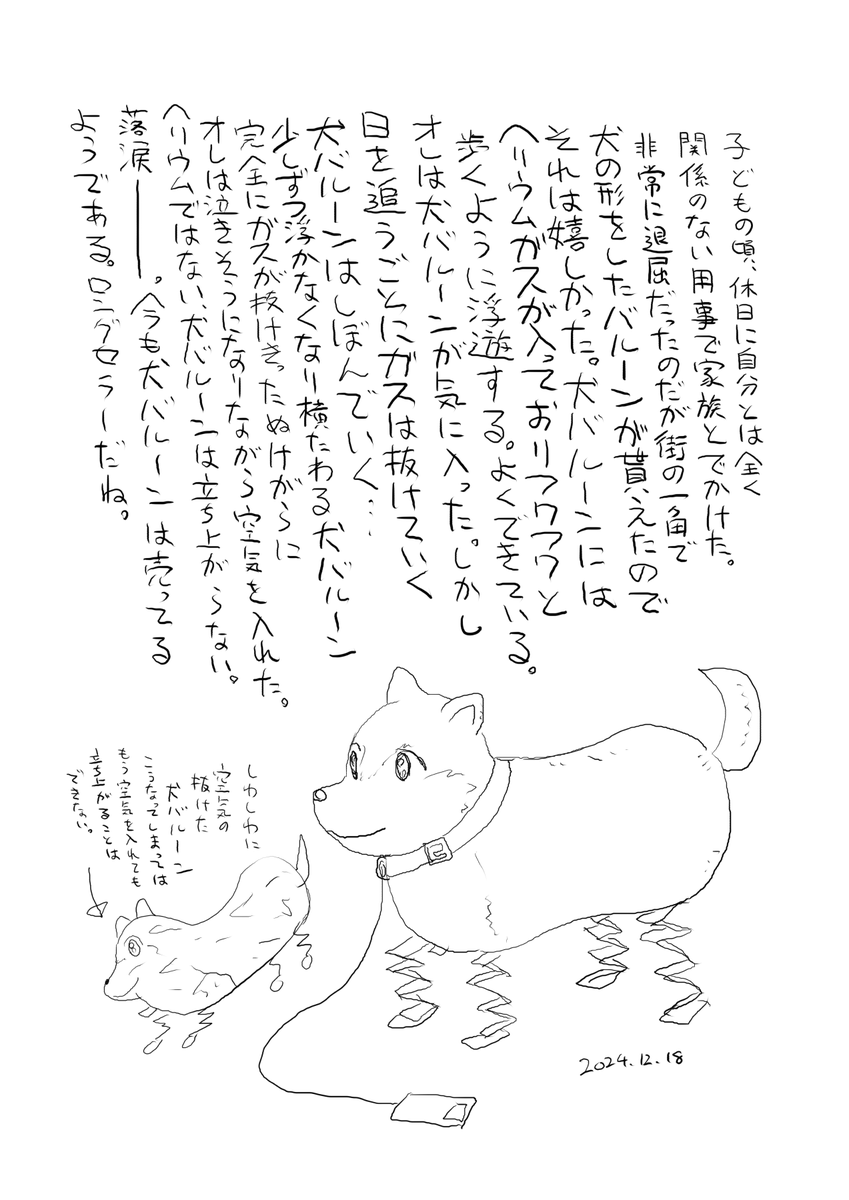 子どもの頃、休日に自分とは全く
関係のない用事で家族とでかけた。
非常に退屈だったのだが街の一角で
犬の形をしたバルーンが貰えたので
それは嬉しかった。犬バルーンには
ヘリウムガスが入っておりフワフワと
歩くように浮遊する。よくできている。
オレは犬バルーンが気に入った。しかし
日を追うごとにガスは抜けていく
犬バルーンはしぼんでいく…
少しずつ浮かなくなり横たわる犬バルーン
完全にガスが抜けきったぬけがらに
オレは泣きそうになりながら空気を入れた。
ヘリウムではない、犬バルーンは立ち上がらない。
落涙――。今も犬バルーンは売ってる
ようである。ロングセラーだね。
しわしわに
空気の
抜けた
犬バルーン
こうなってしまっては
もう空気を入れても
立ち上がることは
できない。
2024.12.18